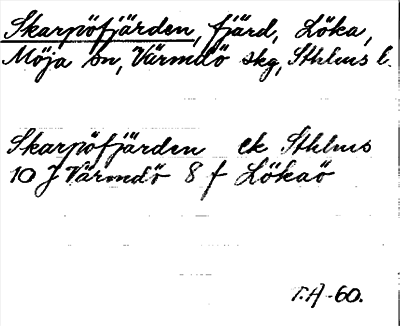 Skarpöfjärden, fjärd, Löka,
Möja sn, Värmdö skg, Sthlms l.
Skarpöfjärden ek Sthlms
10 J Värmdö 8 f Lökaö
T.A -60.